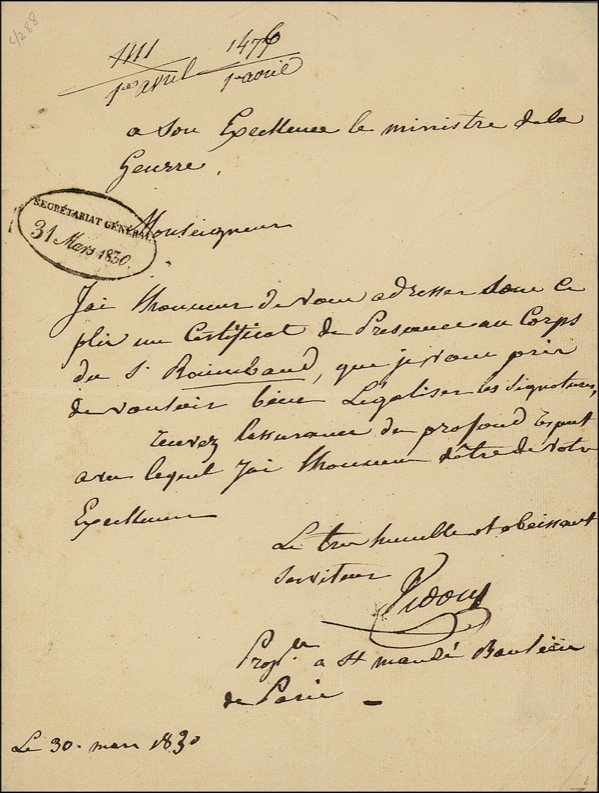 4288
1111 1476
1er avril 1er avril
a Son Excellence le ministre de la
Guerre.
SECRÉTARIAT GÉNÉRAL
31 Mars 1830.
Monseigneur
J'ai lhonneur de vous adresser sous ce
plis un Certificat de Présence au Corps
du S. Raimbaud, que je vous prie
de vouloir bien Légaliser les Signatures,
recevez lassurance du profond respect
avec lequel J'ai lhonneur d'être de votre
Excellence
Le tres humble et obeissant
Serviteur
Vidocq
Propre a St mandé Banlieue
de Paris
Le 30. mars 1830